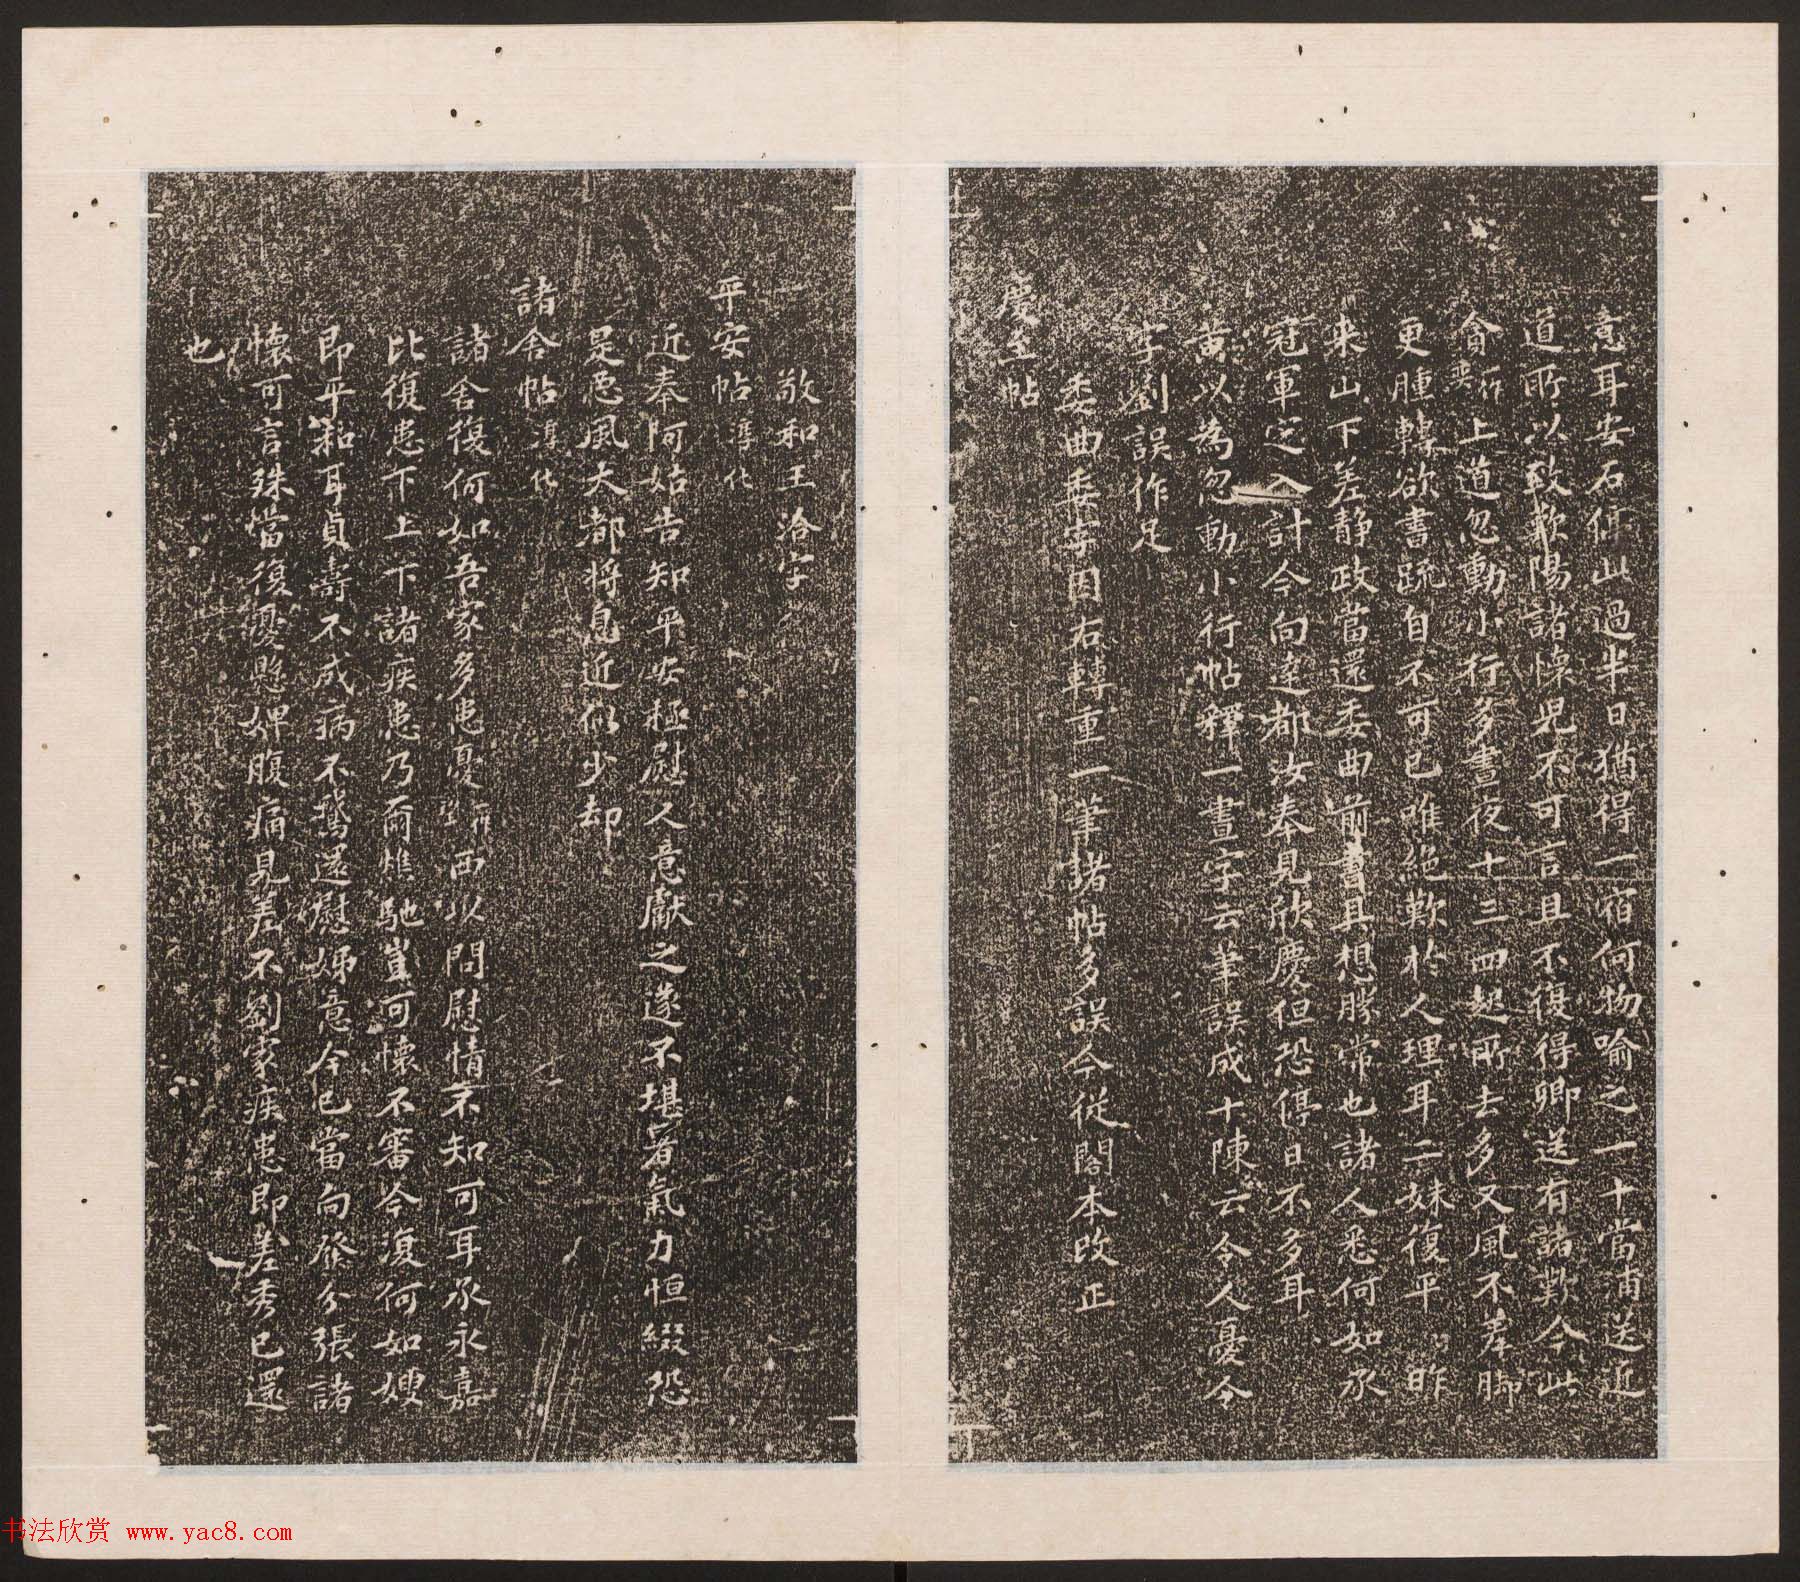 意耳安石停山過半日猶得一宿何物喻之一十當甫送近
道所以致歎陽諸懷兒不可言且不復得卿送有諸歎今此
奐一作上道忽動小行多晝夜十三四起所去多又風不差腳
更腫轉欲書疏自不可已唯絕歎於人理耳二妹復平昨
來山下差靜政當還委曲前書具想勝常也諸人悉何如承
冠軍定入計今向達都汝奉見欣慶但恐停日不多耳
黃以為忽動小行帖釋一晝字云筆誤成十陳云令人憂令
字劉誤作足
委曲委字因右轉重一筆諸帖多誤今從閣本改正
慶至帖
敬和王洽字
平安帖淳化
近奉阿姑告知平安極慰人意獻之遂不堪暑氣力恒綴恐
是惡風大都將息近似少却
諸舍帖淳化
諸舍復何如吾家多患憂一作西以問慰情不知可耳承永嘉
比復患下上下諸疾患乃爾燋馳豈可懷不審今復何如嫂
即平和耳貞壽不成病不鵝還慰姊意今已當向發分張諸
懷可言殊當復憂懸婢腹痛見差不劉家疾患即差秀已還
也
书法欣赏 www.yac8.com